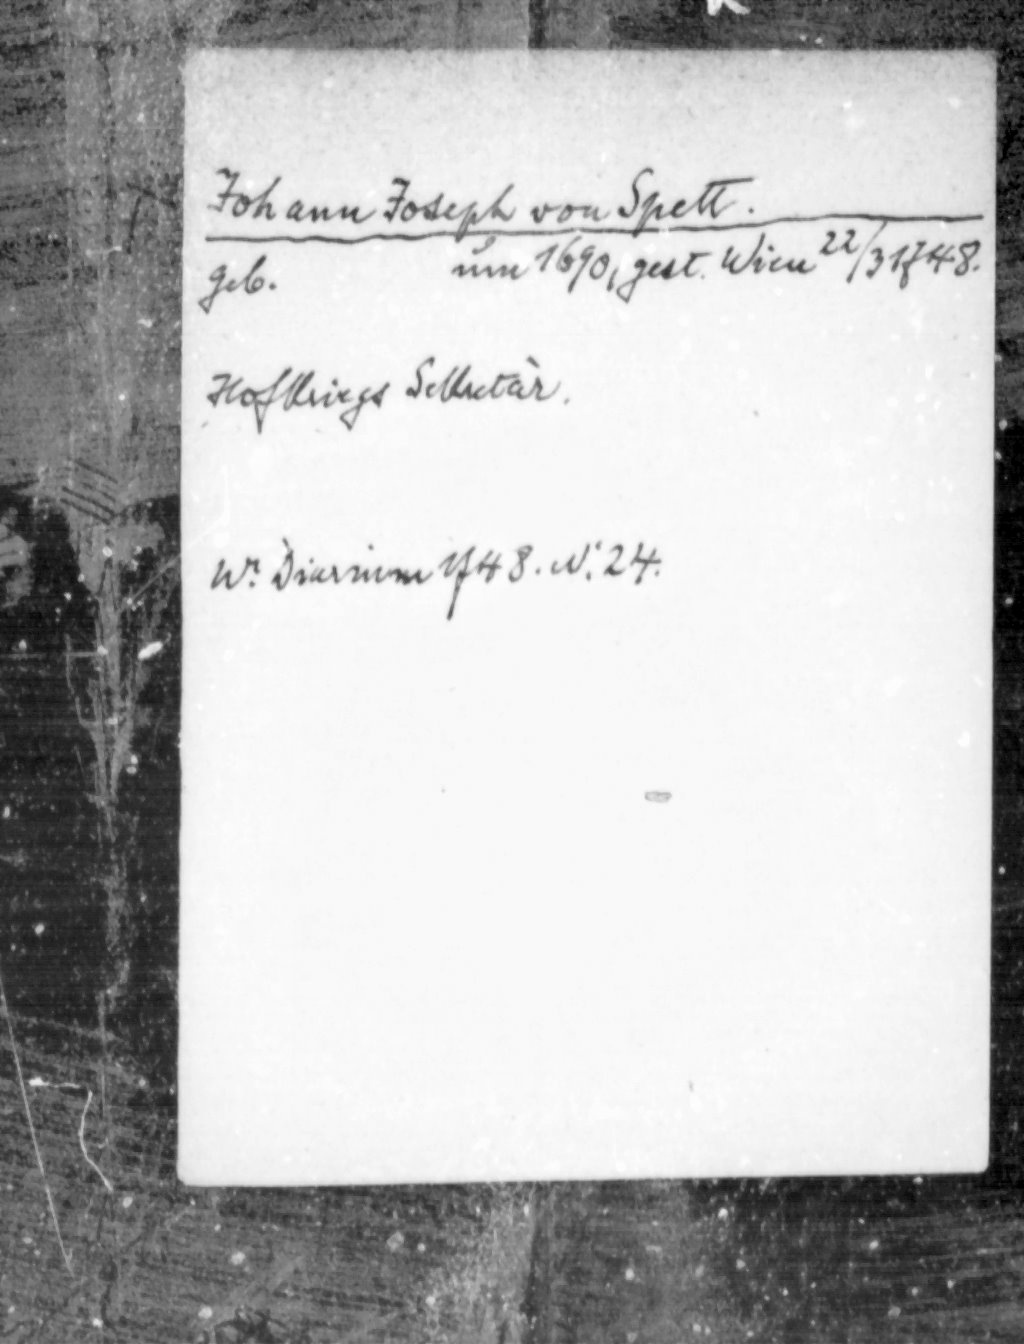 Johann Joseph von Spett.
geb. um 1690, gest. Wien 22/3 1748.
Hofkriegs Sekretär.
Wr. Diarium 1748. N. 24.